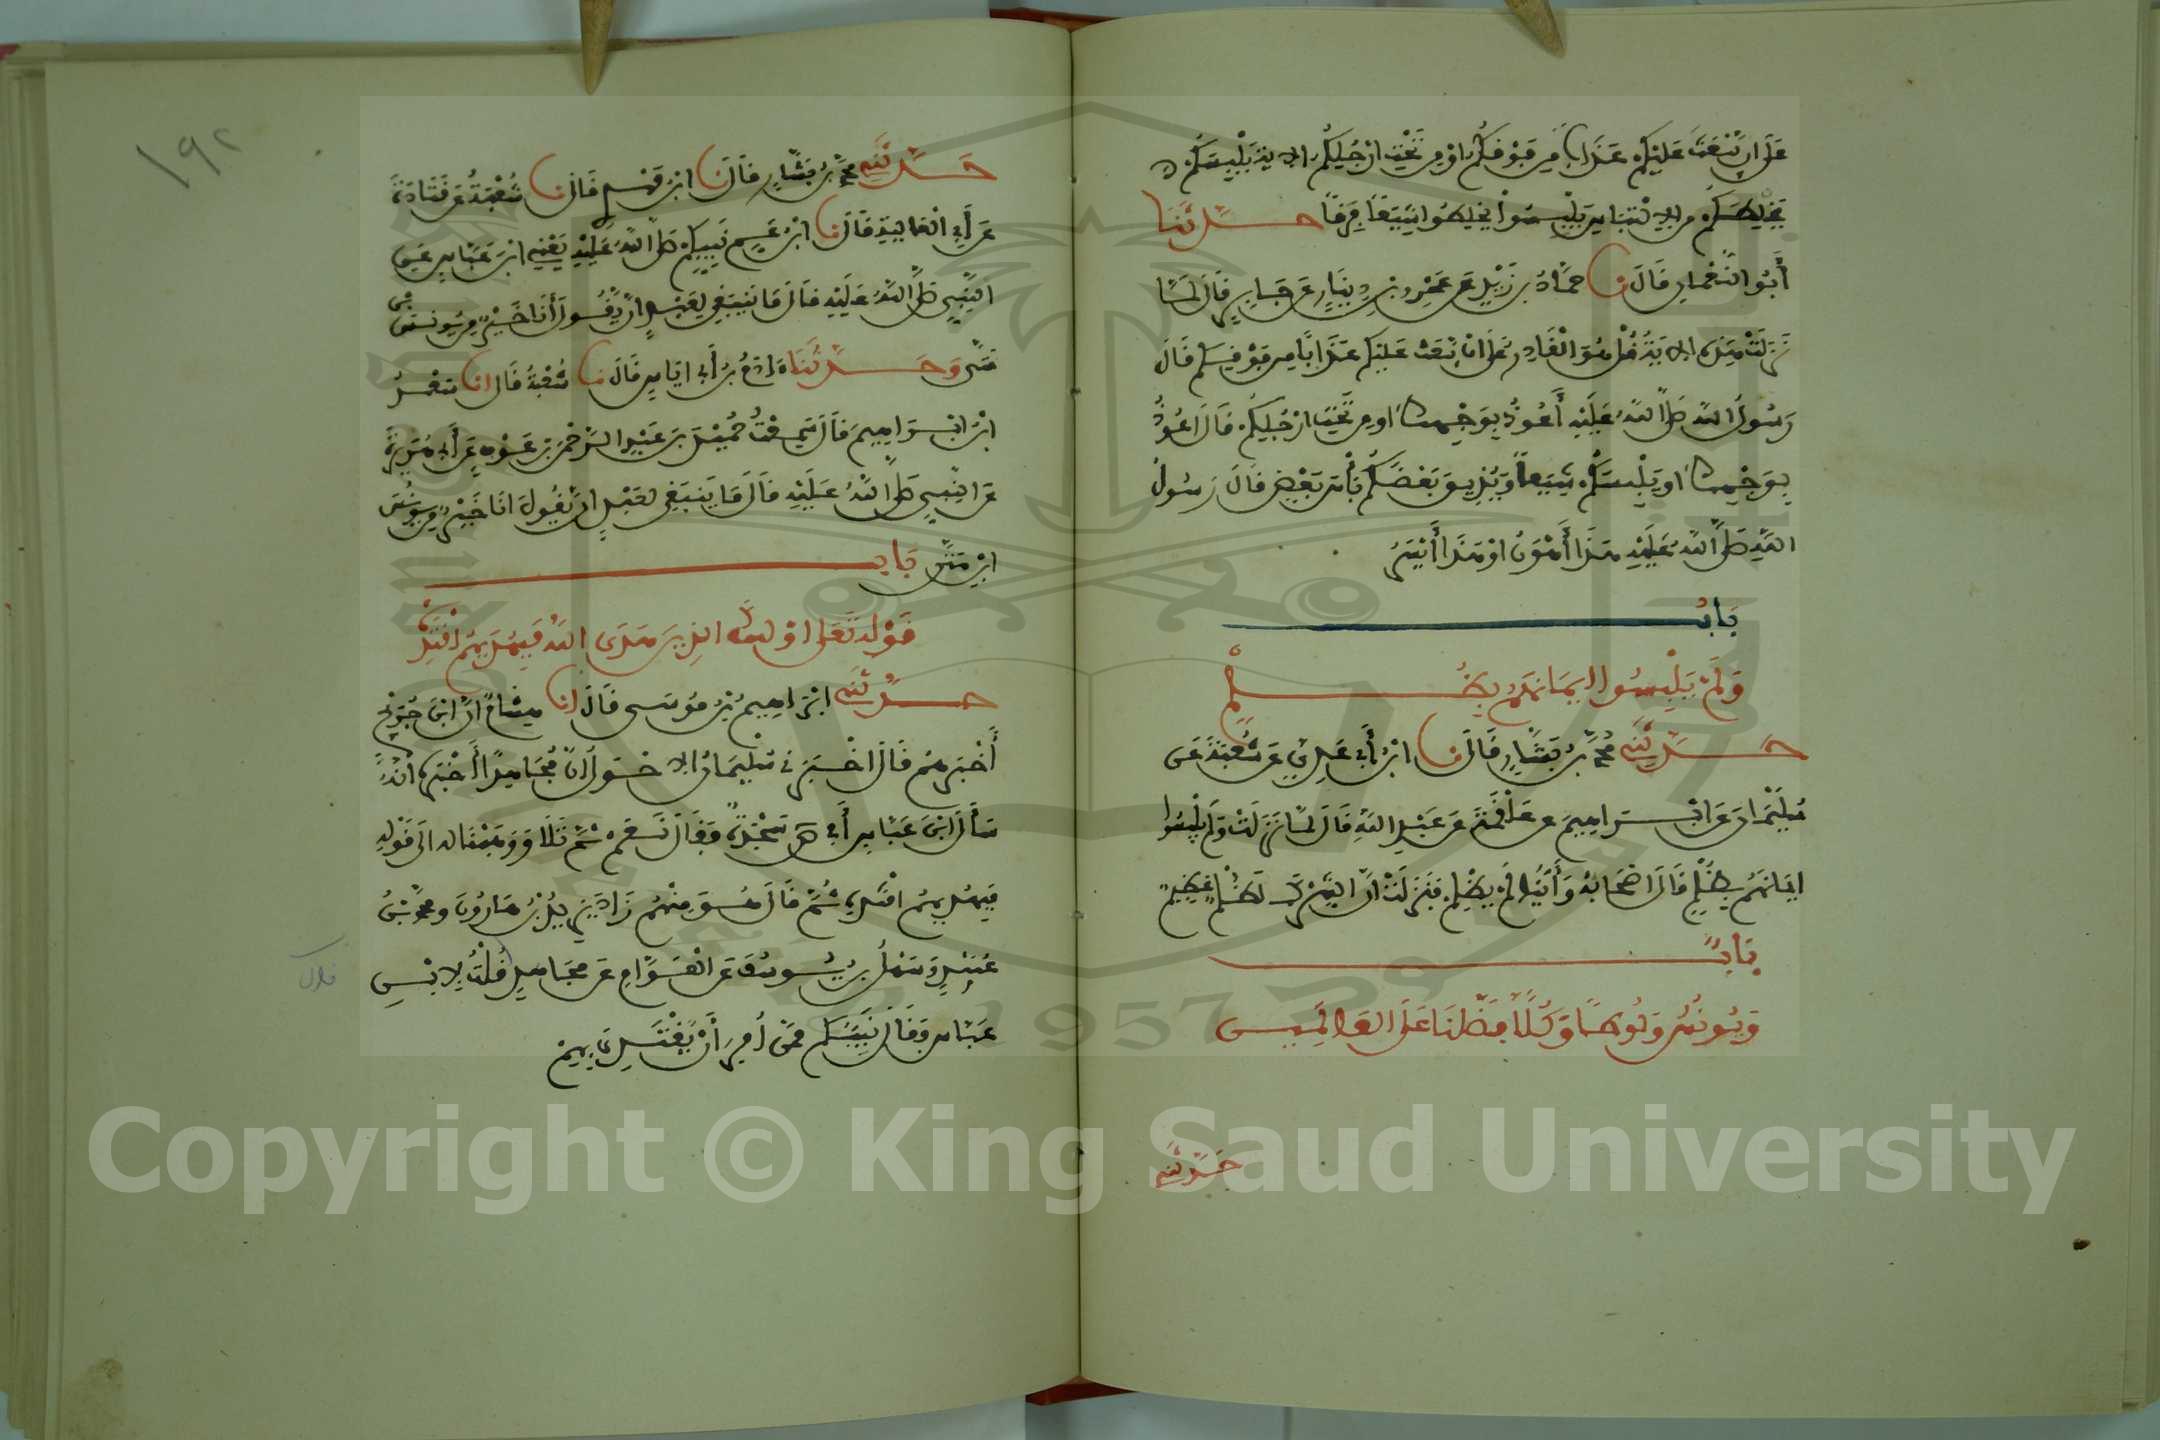 عَلَى أَن يَبْعَثَ عَلَيْكُمْ عَذَاباً مِن فَوْقِكُمُ أَوْ مِن تَحْتِ أَرْجُلِكُم الاية يَلْبِسَكُم
يَخْلِطَكُم من الالتباس يَلْبِسُوا يخلطوا شِيَعًا فِرَقًا حدثنا
أَبُو النُّعْمان قَالَ نا حمَّادُ بن زَيْدٍ عَن عَمْرِو بن دِينَارٍ عَن جَابِرٍ قَالَ لمَّا
نَزَلَتْ هَذِهِ الايَةُ قُلْ هُوَ الْقَادِرُ عَلَى أَنْ يَبْعَثَ عَلَيْكُم عَذَابًا مِن فَوْقِكُم قَالَ
رَسُولُ اللهِ صَلَّى اللهُ عَلَيْهِ أَعُوذُ بِوَجْهِكَ أو مِن تَحْتِ أَرْجُلِكُم قَالَ أَعُوذُ
بِوَجْهِكَ أو يَلْبِسَكُم شِيَعاً وَيُذِيقَ بَعْضَكُم بَأْسَ بَعْضٍ قَالَ رَسُولُ
اللهِ صَلَّى اللهُ عَلَيْهِ هَذَا أَهْوَنُ أَوْ هَذَا أَيْسَرُ
بَابُ
وَلَمْ يَلْبِسُوا ايمَانَهُم بِظُلْمٍ
حَدَّثَنِي مُحَمَّدُ بنُ بَشَّارٍ قَالَ نا ابْنُ أَبِي عَدِيٍّ عَن شُعْبَةَ عَن
سُلَيْمَانَ عَنِ ابْرَاهِيمَ عن عَلْقَمَةَ عَن عَبْدِ اللهِ قَالَ لمَّا نَزَلَتْ وَلَم يَلْبِسُوا
ايمَانَهُم بِظُلْمٍ قَالَ أَصْحَابُهُ وَأَيُّنَا لَمْ يَظْلِمْ فَنَزَلَتْ إِنَّ الشِّرْكَ لَظُلْمٌ عَظِيمٌ
بَابُ
وَيُونُسَ وَلُوطًا وَكُلًّا فَضَّلْنَا عَلَى العَالَمِينَ
حَدَّثَنِي
١٩٢
حَدَّثَنِي محمد بنُ بَشَّارٍ قَالَ نا ابْنُ مَهْدِي قَالَ نا شُعْبَةُ عَن قَتَادَةَ
عَن أَبِي الْعَالِيَةِ قَالَ نا ابْنُ عَمِّ نَبِيِّكُم صَلَّى اللهُ عَلَيْهِ يَعْنِي ابْنَ عَبَّاسٍ عَنِ
النَّبِيِّ صَلَّى اللهُ عَلَيْهِ قَالَ مَا يَنبَغِي لِعَبْدٍ أَنْ يَقُولَ أَنَا خَيْرٌ مِن يُونُسَ بْنِ
مَتَّى وَحَدَّثَنَا ءَادَمُ بنُ أَبِي إيَاسٍ قَالَ نا شُعْبَةُ قَالَ أنا سَعْدُ
ابْنُ ابْرَاهِيمَ قَالَ سَمِعْتُ حُمَيْدَ بنَ عَبْدِ الرَّحْمَنِ بن عَوْفٍ عَن أَبِي هُرَيْرَةَ
عَن النَّبِيِّ صَلَّى اللهُ عَلَيْهِ قَالَ مَا يَنبَغِي لِعَبْدٍ أَنْ يَقُولَ أَنَا خَيْرٌ مِن يُونُسَ
ابْنِ مَتَّى بَابُ
قَوْلِهِ تَعَلَى اوْلَئِكَ الذِينَ هَدَى اللهُ فَبِهُدَيهُمُ اقْتَدِهْ
حَدَّثَنِي ابْرَاهِيمُ بْنُ مُوسَى قَالَ أنا هِشَامٌ أَنَّ ابْنَ جُرَيْجٍ
أَخْبَرَهُمْ قَالَ أَخْبَرَنِي سُلَيْمَانُ الاحْوَلُ أَنَّ مُجَاهِدًا أَخْبَرَهُ أَنَّهُ
سَأَلَ ابْنَ عَبَّاسٍ أَفِي ص سَجْدَةٌ فَقَالَ نَعَمْ ثُمَّ تَلَا وَوَهَبْنَا له الَى قَوْلِهِ
فَبِهُدَيهُمُ اقْتَدِهِ ثُمَّ قَالَ هُوَ مِنْهُمْ زَادَ يَزِيدُ بْنُ هَارُونَ ومحمد بْنُ
عُبَيْدٍ وَسَهْلُ بنُ يُوسُفَ عَن الْعَوَّامِ عَن مُجَاهِدٍ قُلْتُ لِابْنِ
عَبَّاسٍ فَقَالَ نَبِيُّكُم مِمَّنْ أُمِرَ أَنْ يَقْتَدِيَ بِهِمْ
Copyright © King Saud University
1957